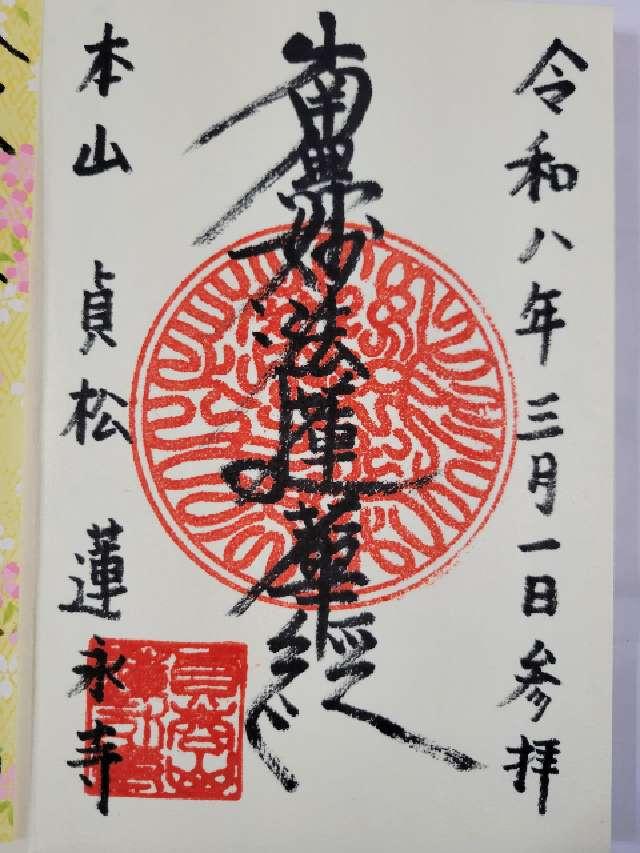 令和八年三月一日参拝
南無妙法蓮華経
本山 貞松 蓮永寺